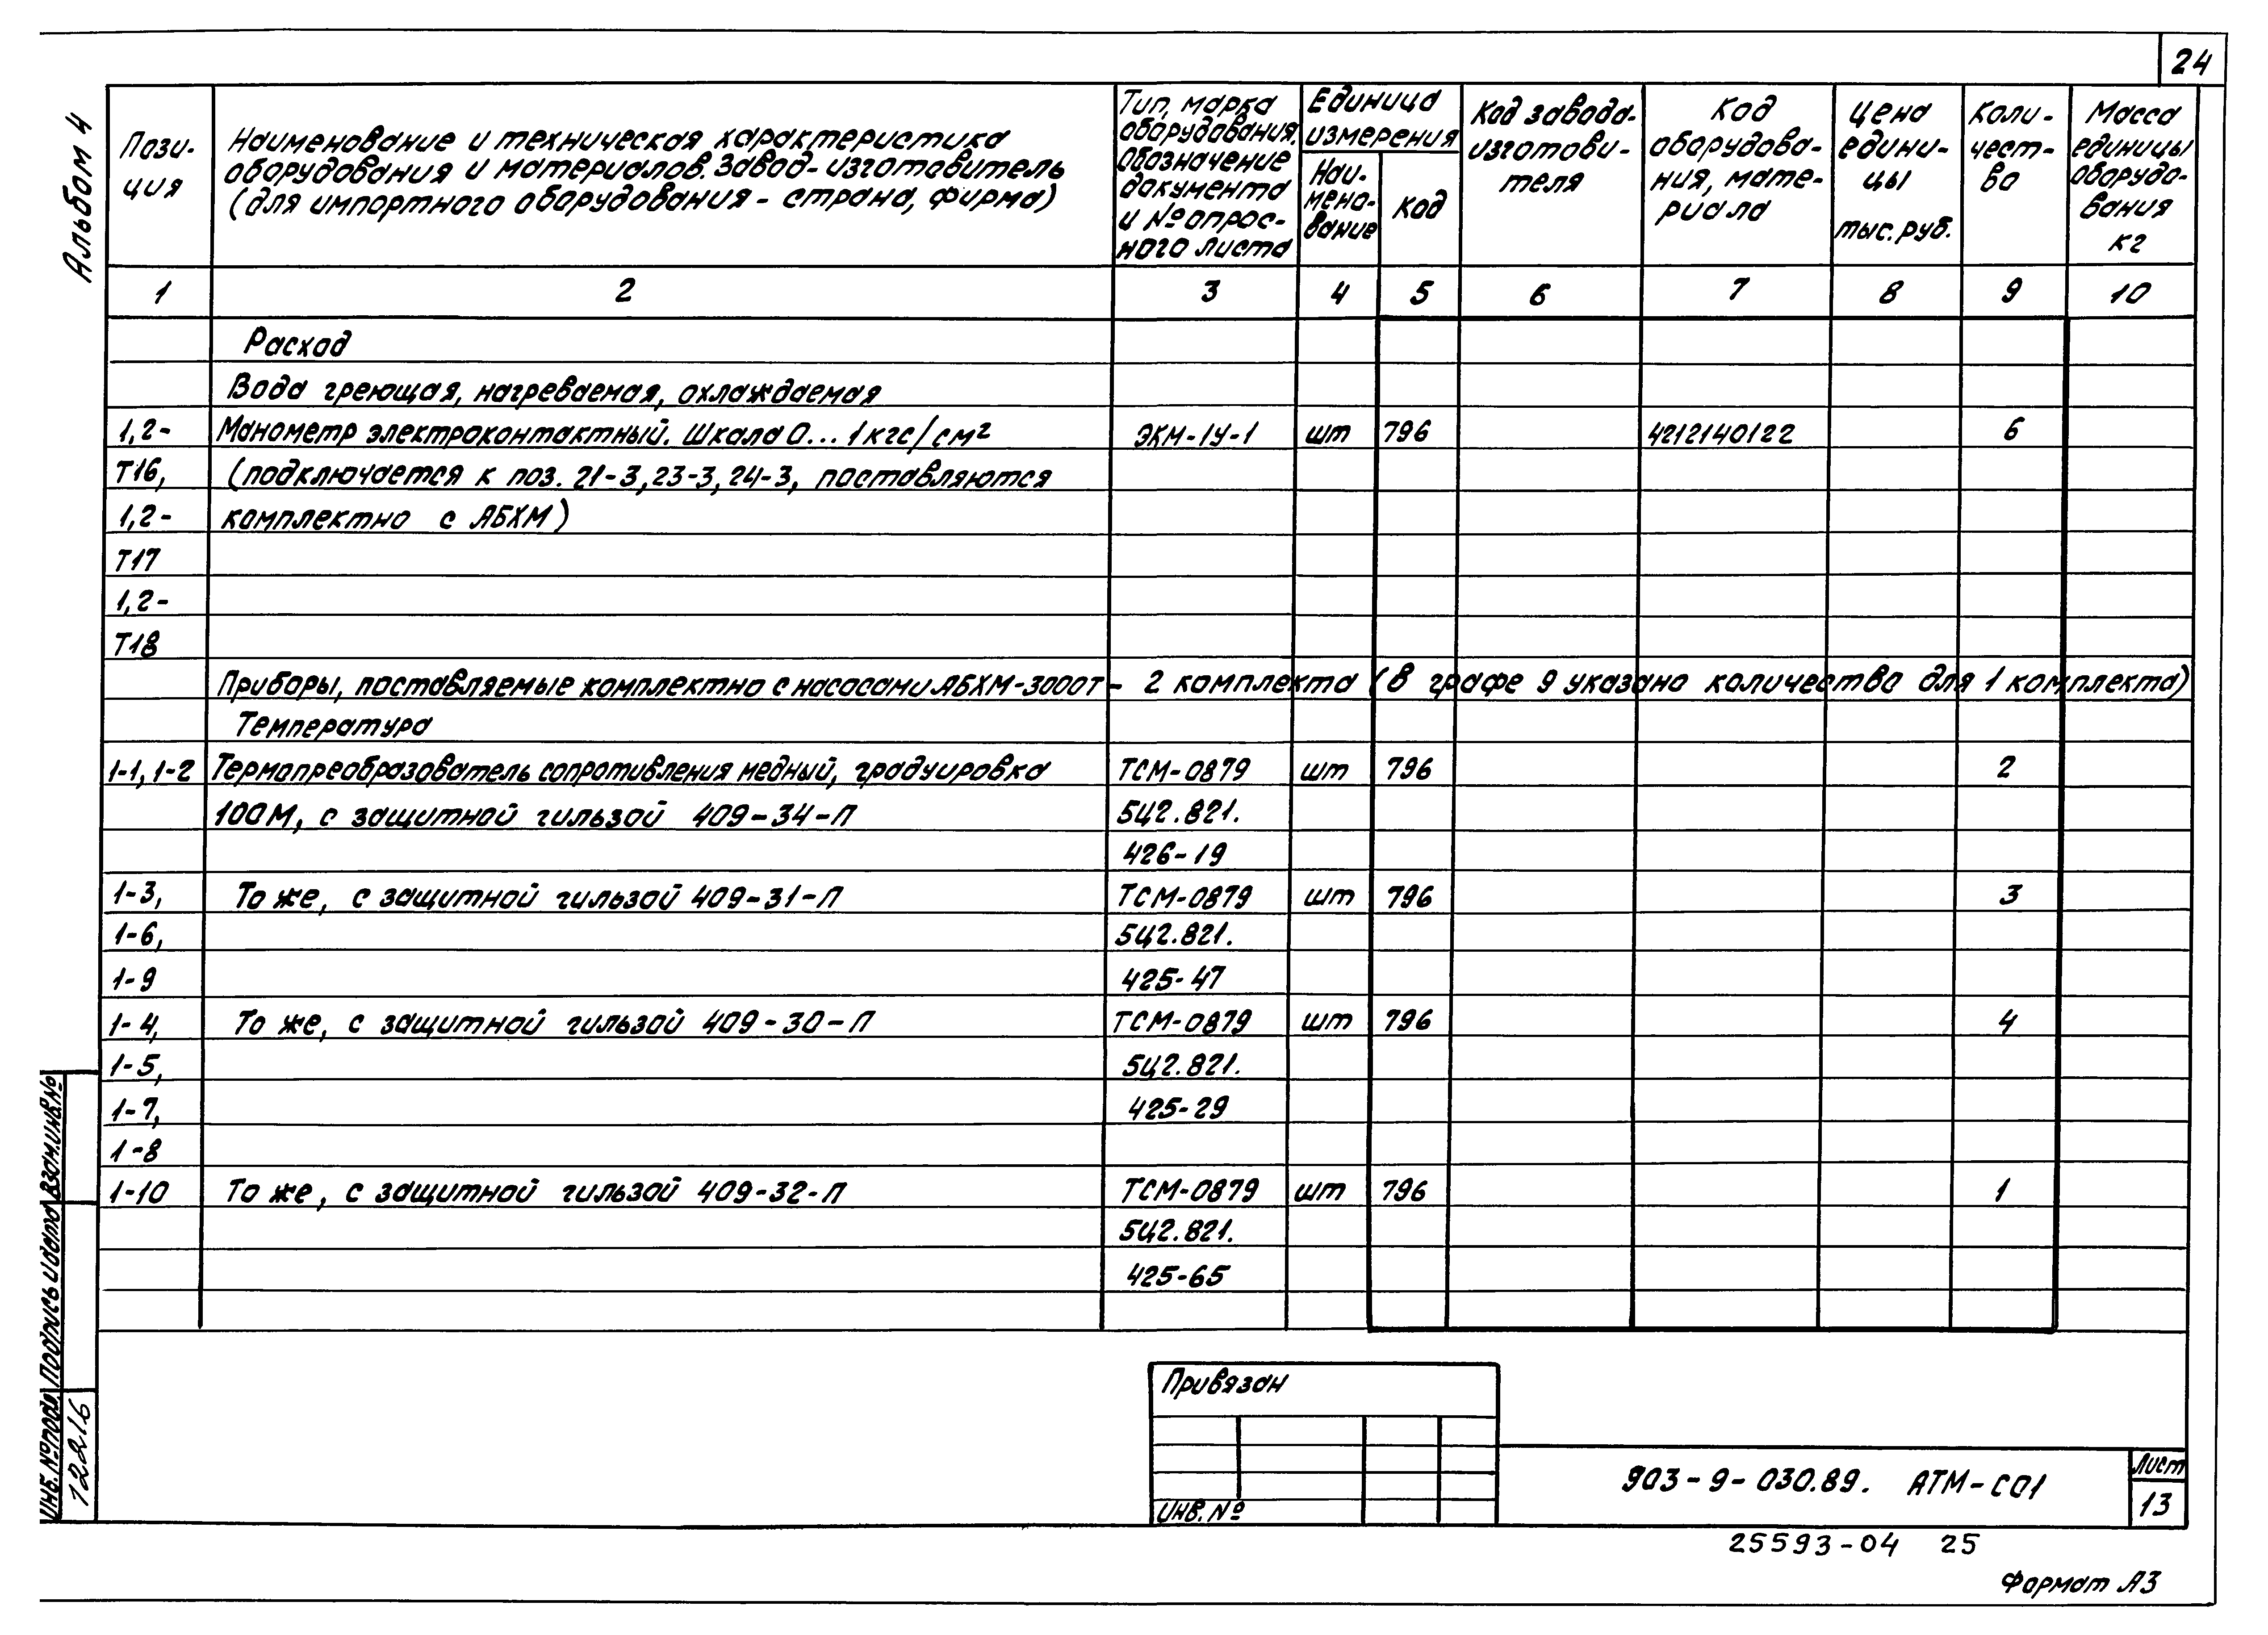 24
Альбом 4
Пози-
ция
Наименование и техническая характеристика
оборудования и материалов. Завод-изготовитель
(для импортного оборудования - страна, фирма)
Тип, марка
оборудования.
Обозначение
документа
и № опрос-
ного листа
Единица
измерения
Наи-
мено-
вание
Код
Код завода-
изготови-
теля
Код
оборудова-
ния, мате-
риала
Цена
едини-
цы
тыс. руб.
Коли-
чест-
во
Масса
единицы
оборудо-
вания
кг
1 2 3 4 5 6 7 8 9 10
Расход
Вода греющая, нагреваемая, охлаждаемая
1,2- Манометр электроконтактный. Шкала 0...1 кгс/см² ЭКМ-1У-1 шт 796 4212140122 6
Т16, (подключается к поз. 21-3, 23-3, 24-3, поставляются
1,2- комплектно с АБХМ)
Т17
1,2-
Т18
Приборы, поставляемые комплектно с насосами АБХМ-3000Т- 2 комплекта (в графе 9 указано количество для 1 комплекта)
Температура
1-1, 1-2 Термопреобразователь сопротивления медный, градуировка ТСМ-0879 шт 796 2
100М, с защитной гильзой 409-34-П 5Ц2.821.
426-19
1-3, То же, с защитной гильзой 409-31-П ТСМ-0879 шт 796 3
1-6, 5Ц2.821.
1-9 425-47
1-4, То же, с защитной гильзой 409-30-П ТСМ-0879 шт 796 4
1-5, 5Ц2.821.
1-7, 425-29
1-8
1-10 То же, с защитной гильзой 409-32-П ТСМ-0879 шт 796 1
5Ц2.821.
425-65
Взам.инв.№
Подпись и дата
Инв. № подл.
12216
Привязан
Инв. №
903-9-030.89. АТМ-СО1
Лист
13
25593-04 25
Формат А3